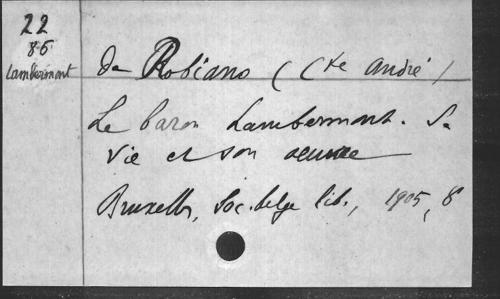 22
86
Lambermont
De Robiano (Cte André)
Le baron Lambermont. Sa
vie et son oeuvre
Bruxelles, Soc. belge lib., 1905, 8